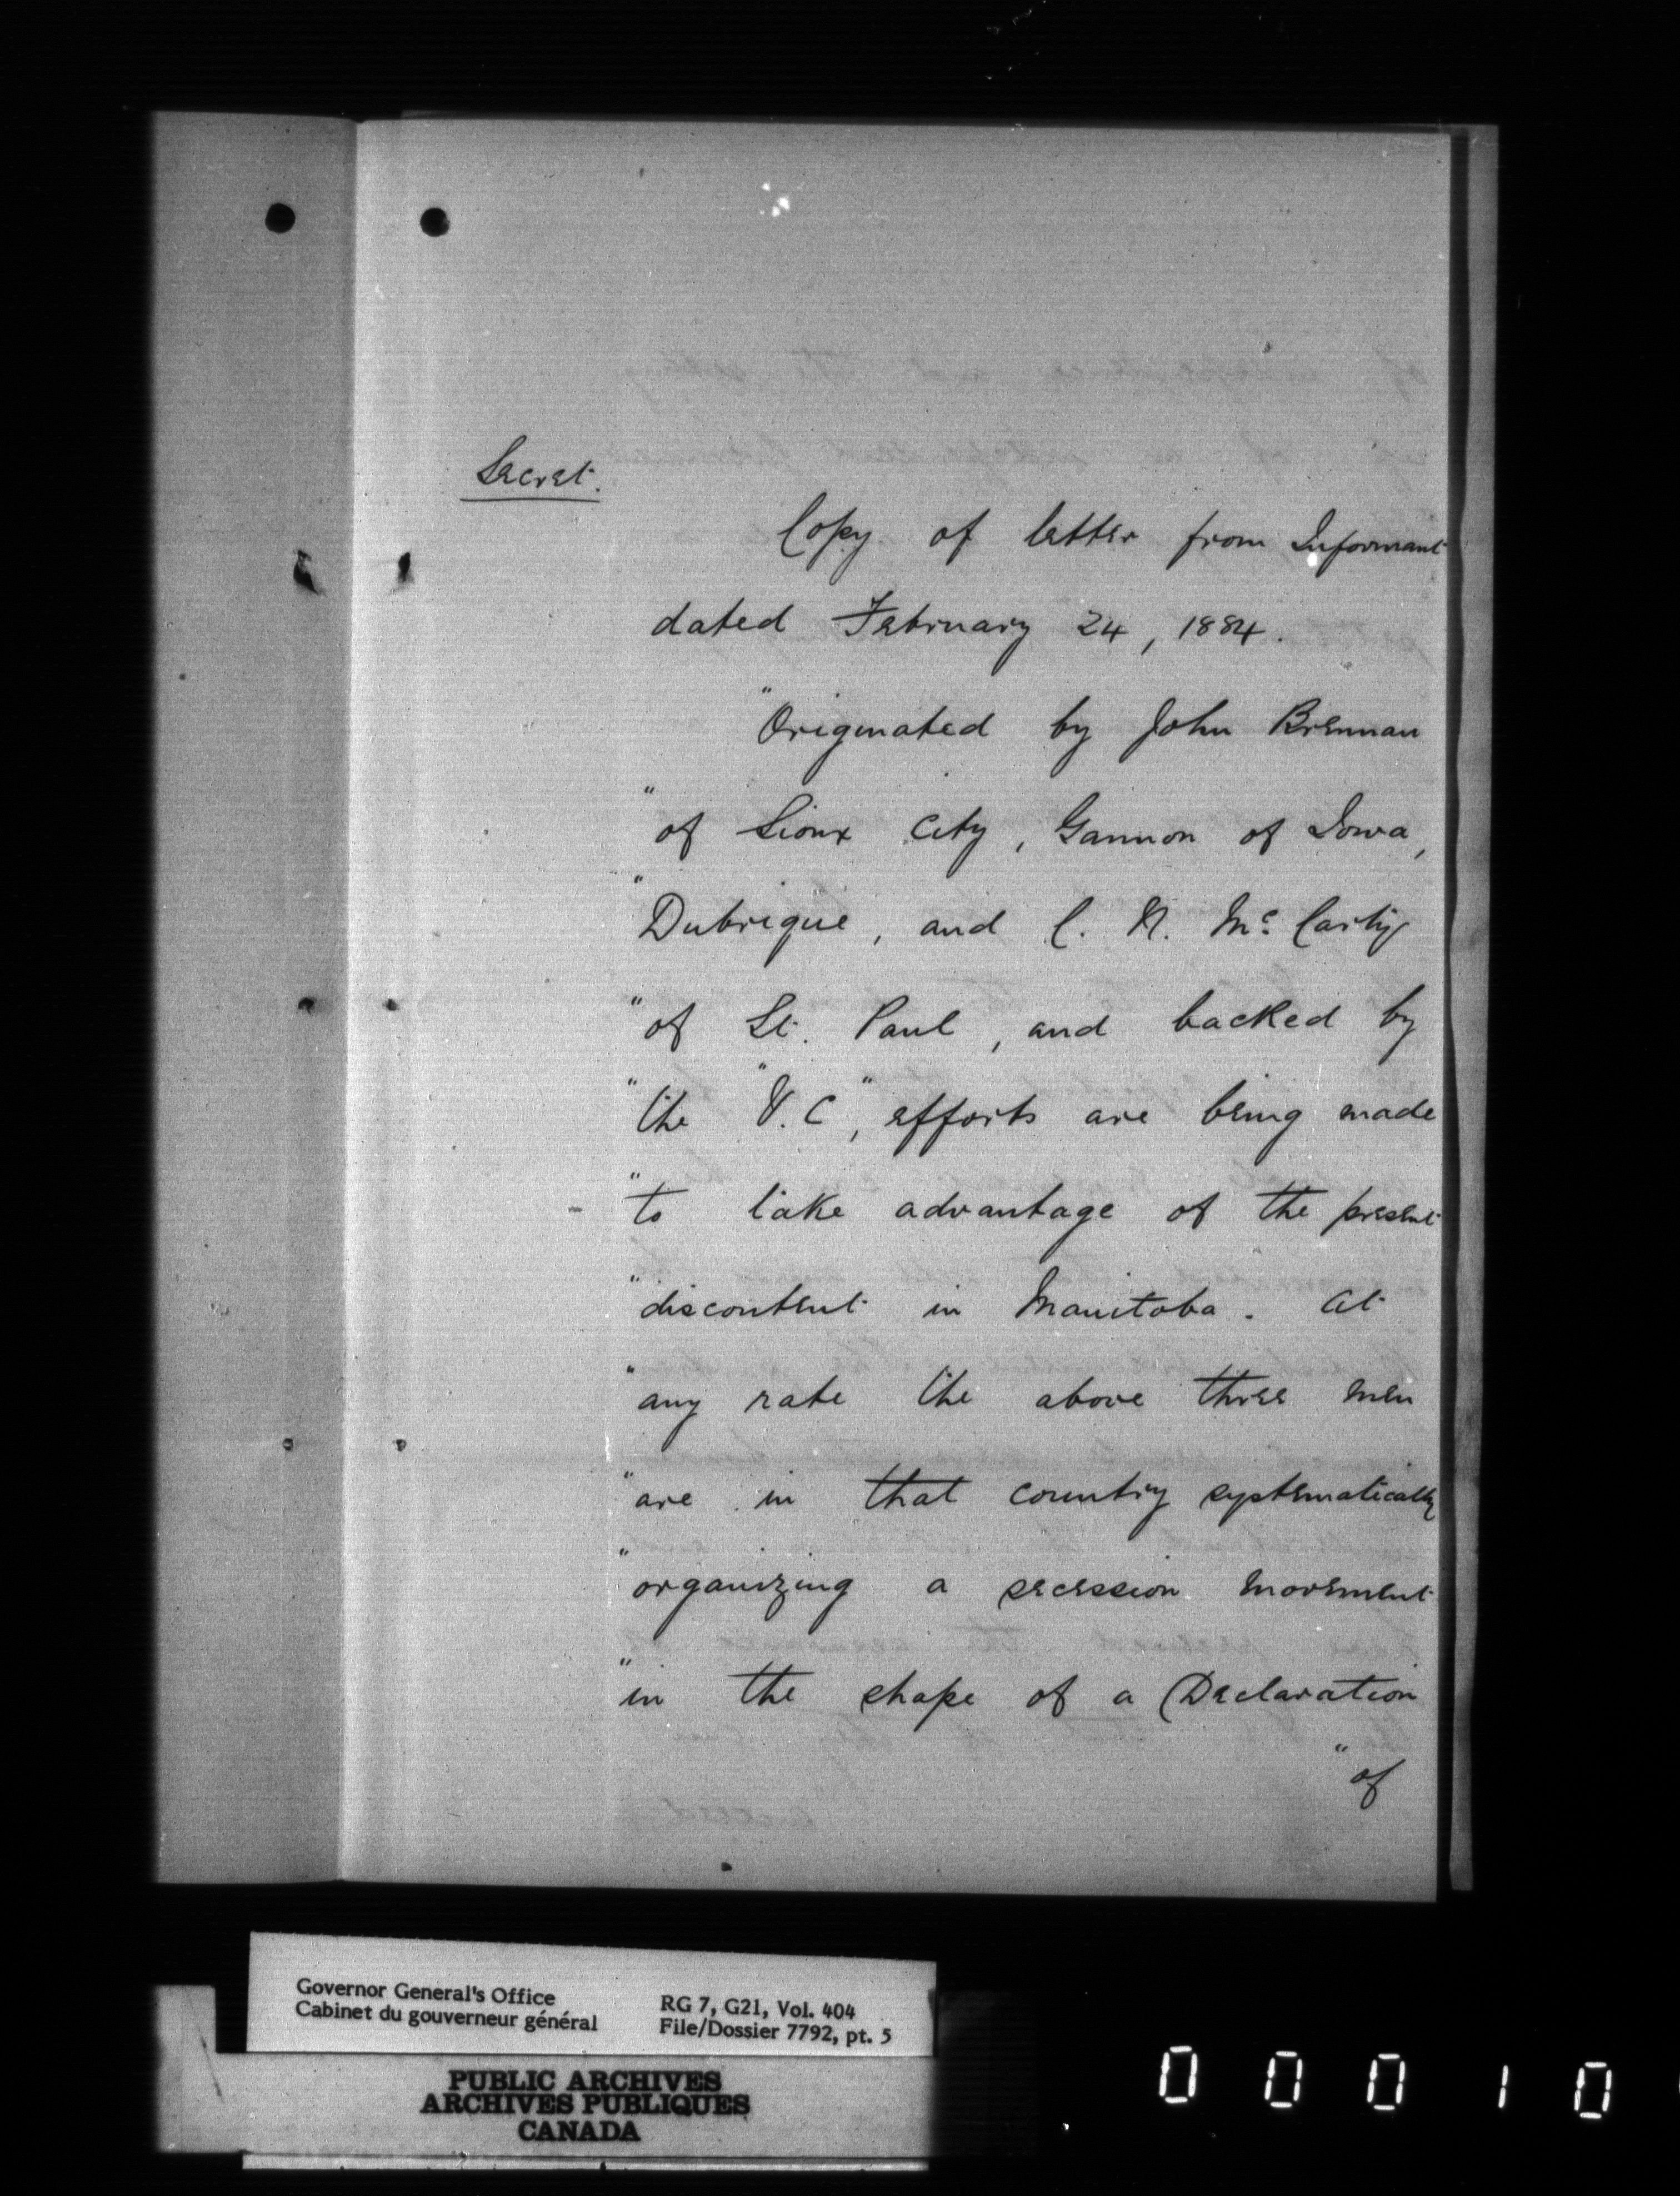 Secret.
Copy of letter from Informant
dated February 24, 1884.
"Originated by John Brennan
"of Sioux City, Gannon of Iowa,
"Dubrique, and C. N. Mc Carthy
"of St. Paul, and backed by
"the "V.C", efforts are being made
"to take advantage of the present
"discontent in Manitoba. At
"any rate the above three men
"are in that country systematically
"organizing a secession movement
"in the shape of a Declaration
"of
Governor General's Office
Cabinet du gouverneur général
RG 7, G21, Vol. 404
File/Dossier 7792, pt. 5
PUBLIC ARCHIVES
ARCHIVES PUBLIQUES
CANADA
0 0 0 1 0